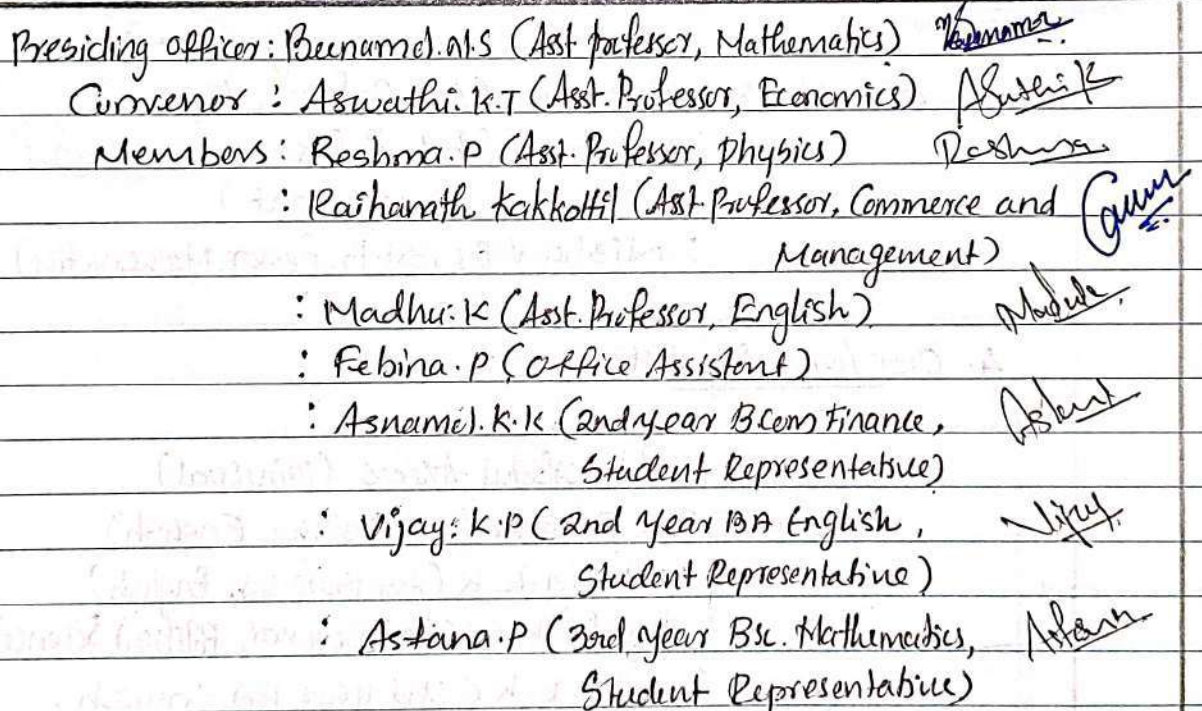 Presiding officer: Beenamol.M.S (Asst professor, Mathematics)
Convenor : Aswathi.K.T (Asst. Professor, Economics)
Members: Reshma.P (Asst. Professor, physics) Reshma
: Raihanath Kakkottil (Asst. Professor, Commerce and
Management)
: Madhu.K (Asst. Professor, English)
: Febina.P (Office Assistant)
: Asnamol.K.K (2nd year Bcom Finance,
Student Representative)
: Vijay.K.P (2nd year BA English, Vijay
Student Representative)
: Astana.P (3rd year Bsc. Mathematics,
Student Representative)